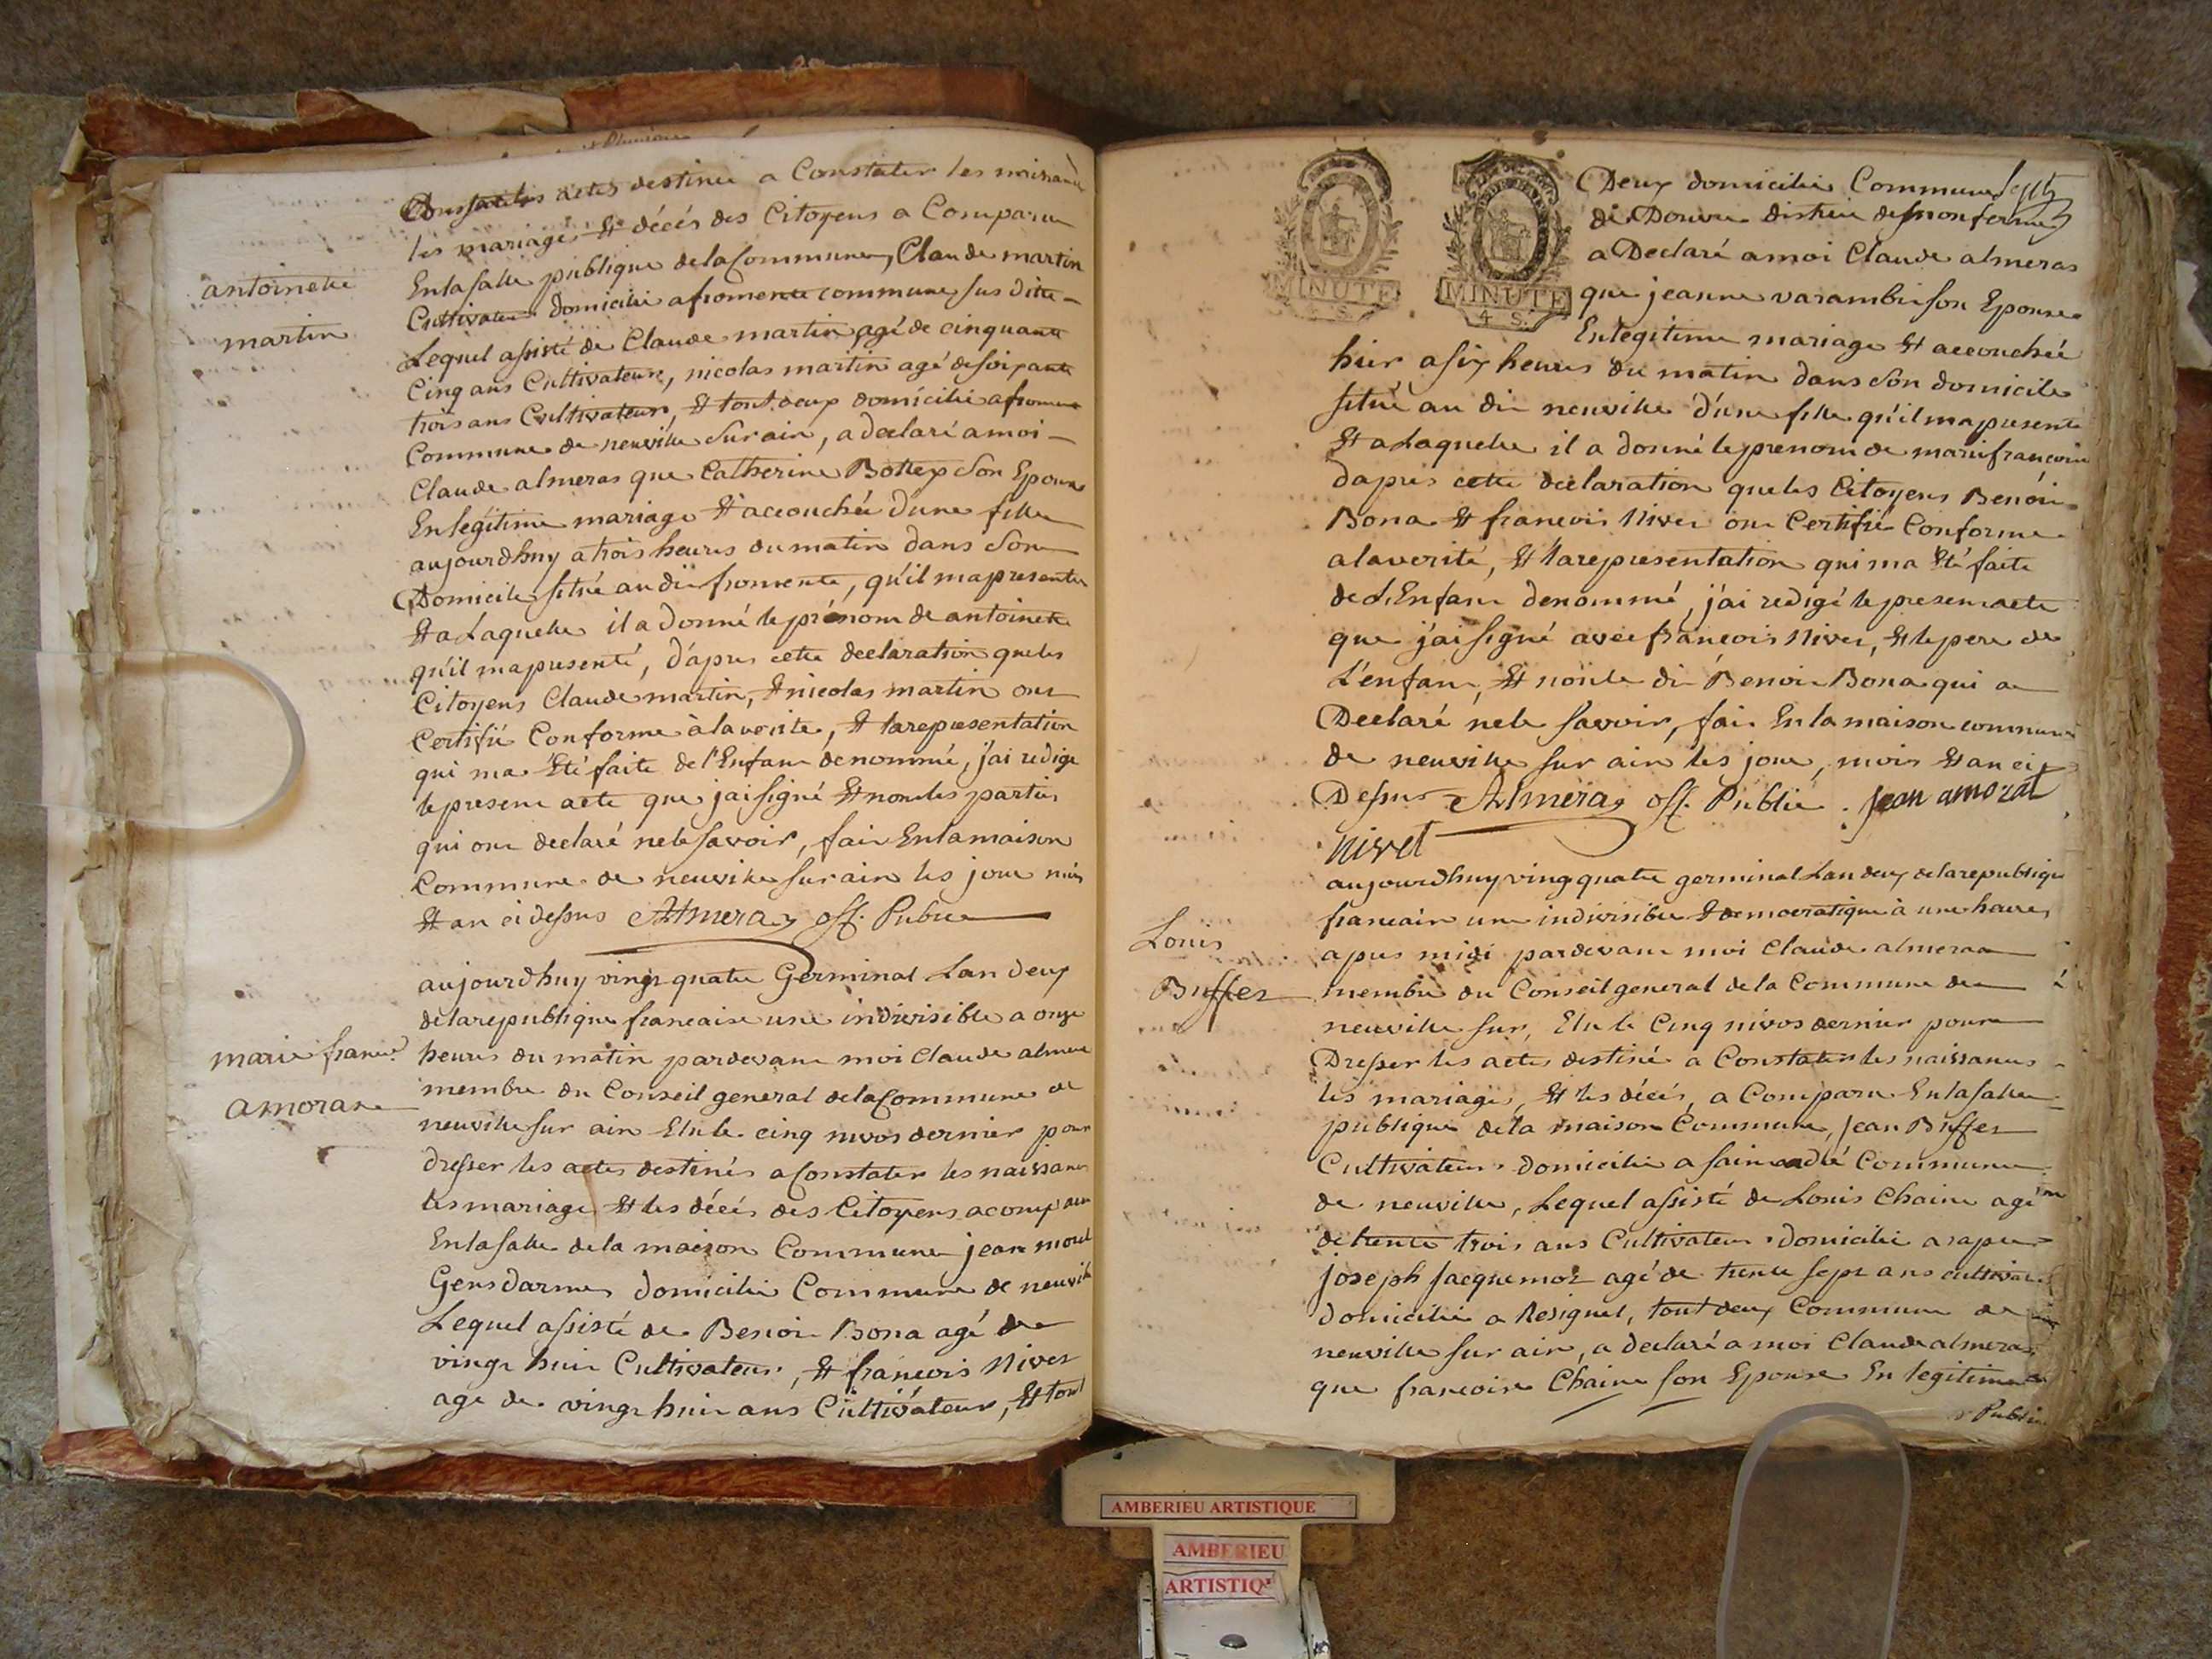 antoinette
martin
actes destinée a Constater les naisances
les mariages Et décés des Citoyens a Comparu
Enlasalle publique delaCommune, Claude martin
Cultivateur domicilié afromente commune sus dite
Lequel assisté de Claude martin agé de cinquante
Cinq ans Cultivateur, nicolas martin agé desoixante
trois ans Cultivateur, Et tout deux domicilié afromente
Commune de neuville sur ain, a declaré amoi
Claude almeras que Catherine Bottex son Epouse
Enlegitime mariage Et accouchée dune fille
aujourdhuy atrois heures dumatin dans son
Domicile situé audit fromente, qu'il mapresenter
Et aLaquelle il a donné le prénom de antoinette
qu'il mapresenté, d'apres cette declaration queles
Citoyens Claude martin, Et nicolas martin ont
Certifié Conforme àlaverite, Et larepresentation
qui ma Eté faite de l'Enfant denommé, j'ai redigé
le present acte que jaisigné Et non les parties
qui ont declaré nelesavoir, fait Enlamaison
Commune de neuville sur ain les jour mois
Et an ci dessus Almeras off. Public
marie franc.
amorat
aujourdhuy vingt quatre Germinal Lan deux
delarepublique francaise une indivisible a onze
heures du matin pardevant moi Claude almera
membre du Conseil general delaCommune de
neuville sur ain Elu le cinq nivos dernier pour
dresser les actes destinés aConstater les naissances
les mariage Et les décés des Citoyens acomparu
Enlasalle dela maison Commune jean morat
Gensdarme domicilié Commune de neuville
Lequel assisté de Benoit Bona agé de
vingt huit Cultivateur, Et francois Nivet
age de vingt huit ans Cultivateur, Et tout
MINUTE
MINUTE
4 S.
Deux domicilié Commune
de Douvre district de monferme
a Declaré amoi Claude almeras
que jeanne varambie son Epouse
Enlegitime mariage Et accouchée
hier asix heures du matin dans son domicile
situé au dit neuville d'une fille qu'il mapresenté
Et aLaquelle il a donné le prenom de marie francoise
dapres cette declaration queles Citoyens Benoit
Bona Et francois Nivet ont Certifié Conforme
alaverité, Et larepresentation qui ma Eté faite
deL'Enfant denommé, j'ai redigé le present acte
que j'ai signé avec francois Nivet, Et le pere de
L'enfant, Et non le dit Benoit Bona qui a
Declaré nele savoir, fait Enlamaison commune
de neuville sur ain les jour, mois Et an ci
Dessus Almeras off. Public. Jean amorat
Nivet
Louis
Buffet
aujourdhuy vingquatre germinal Lan deux delarepublique
francais une indivisible Et democratique à une heure
apres midi pardevant moi Claude almeras
membre du Conseil general dela Commune de
neuville sur, Elu le Cinq nivos dernier pour
Dresser les actes destiné a Constater les naissances
les mariages, Et les décés, a Comparu Enlasalle
publique dela maison Commune, jean Buffet
Cultivateur domicilié a saint andré Commune
de neuville, Lequel assisté de Louis Chaine agé
detrente trois ans Cultivateur domicilié arapet
joseph jacquemot agé de trente sept ans cultivateur
domicilié a Resignel, tout deux Commune de
neuville sur ain, a declaré a moi Claude almeras
que francoise Chaine son Epouse En legitime
Public
AMBERIEU ARTISTIQUE
AMBERIEU
ARTISTIQ